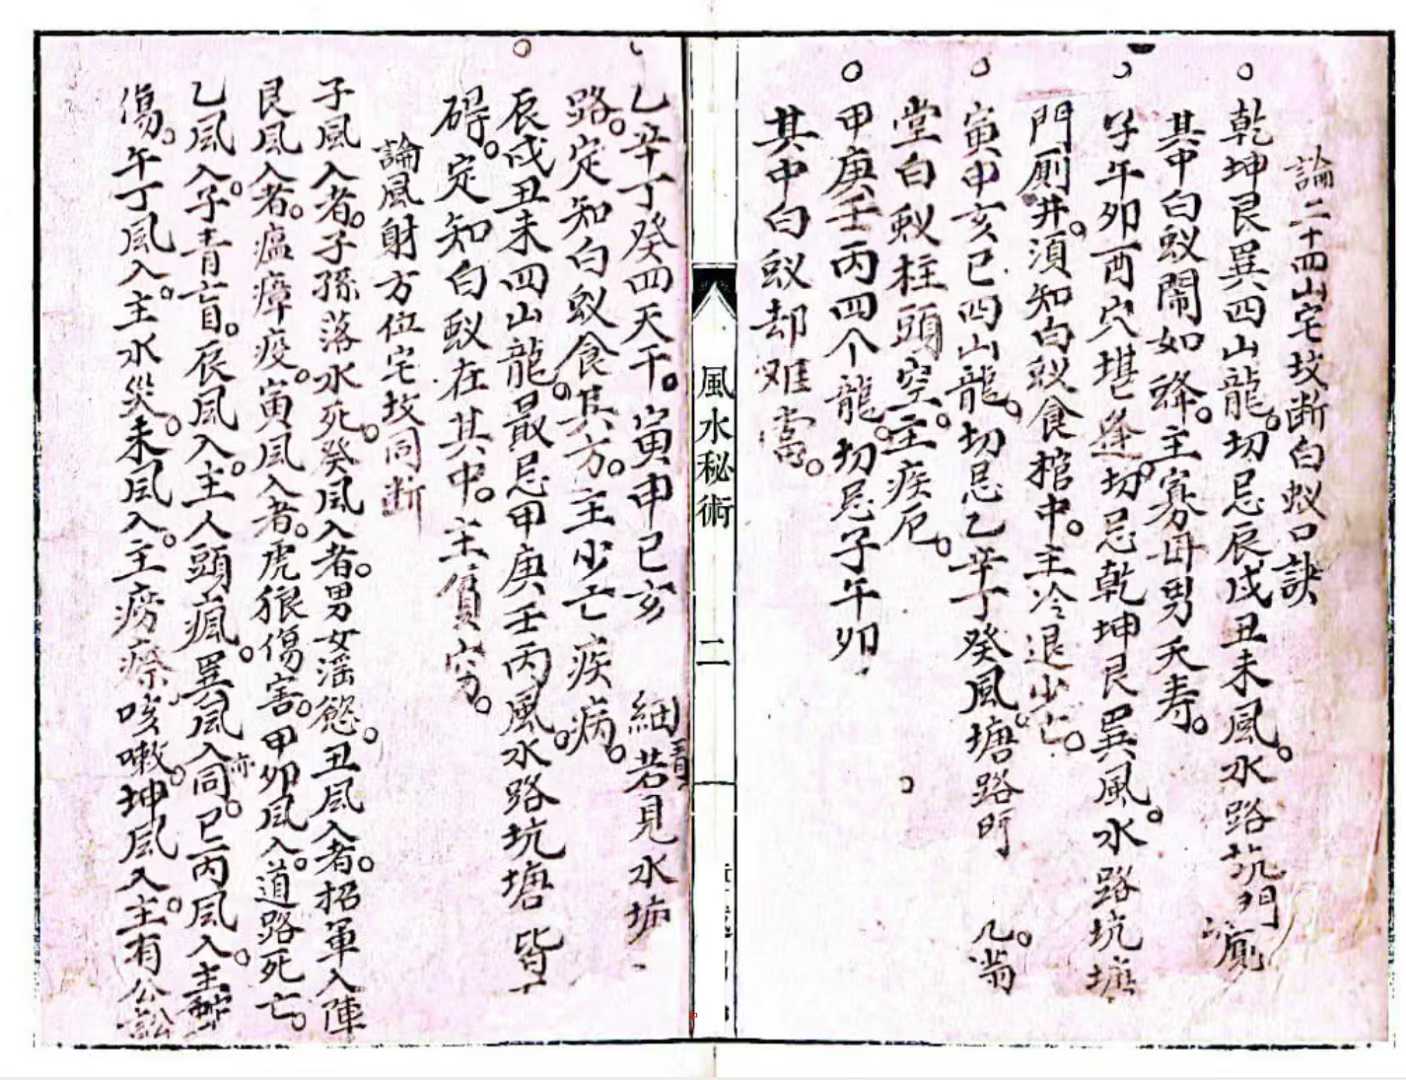 論二十四山宅坟断白蚁口訣
○乾坤艮巽四山龍。切忌辰戌丑未風。水路坑門厠
其中白蚁鬧如蜂。主寡母男夭寿。
子午卯酉穴堪逢。切忌乾坤艮巽風。水路坑塘
門厠井。須知白蚁食棺中。主冷退少亡。
○寅申亥巳四山龍。切忌乙辛丁癸風。塘路
堂白蚁柱頭空。主疾厄。
○甲庚壬丙四个龍。切忌子午卯
其中白蚁却难當。
風水秘術
二
乙辛丁癸四天干。寅申巳亥 細看若見水
路。定知白蚁食其方。主少亡疾病。
○辰戌丑未四山龍。最忌甲庚壬丙風。水路坑塘皆
碍。定知白蚁在其中。主貧窮。
論風射方位宅坟同断
子風入者。子孫落水死。癸風入者。男女淫慾。丑風入者。招軍入陣
艮風入者。瘟瘴疫。寅風入者。虎狼傷害。甲卯風入。道路死亡。
乙風入。子青盲。辰風入。主人頭瘋。巽風入同。巳丙風入。主
傷。午丁風入。主水災。未風入。主癆瘵咳嗽。坤風入。主有公訟